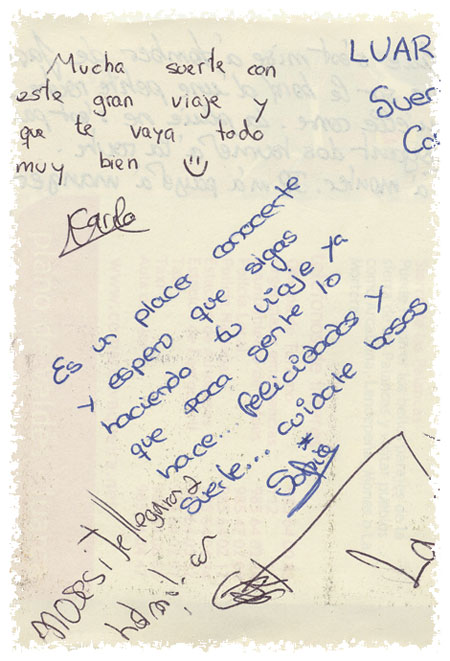 Mucha suerte con
este gran viaje y
que te vaya todo
muy bien
Karla
LUAR
Suer
Co
Es un placer conocerte
y espero que sigas
haciendo tu viaje ya
que poca gente lo
hace... felicidades y
suerte... cuidate besos
Sofia
La